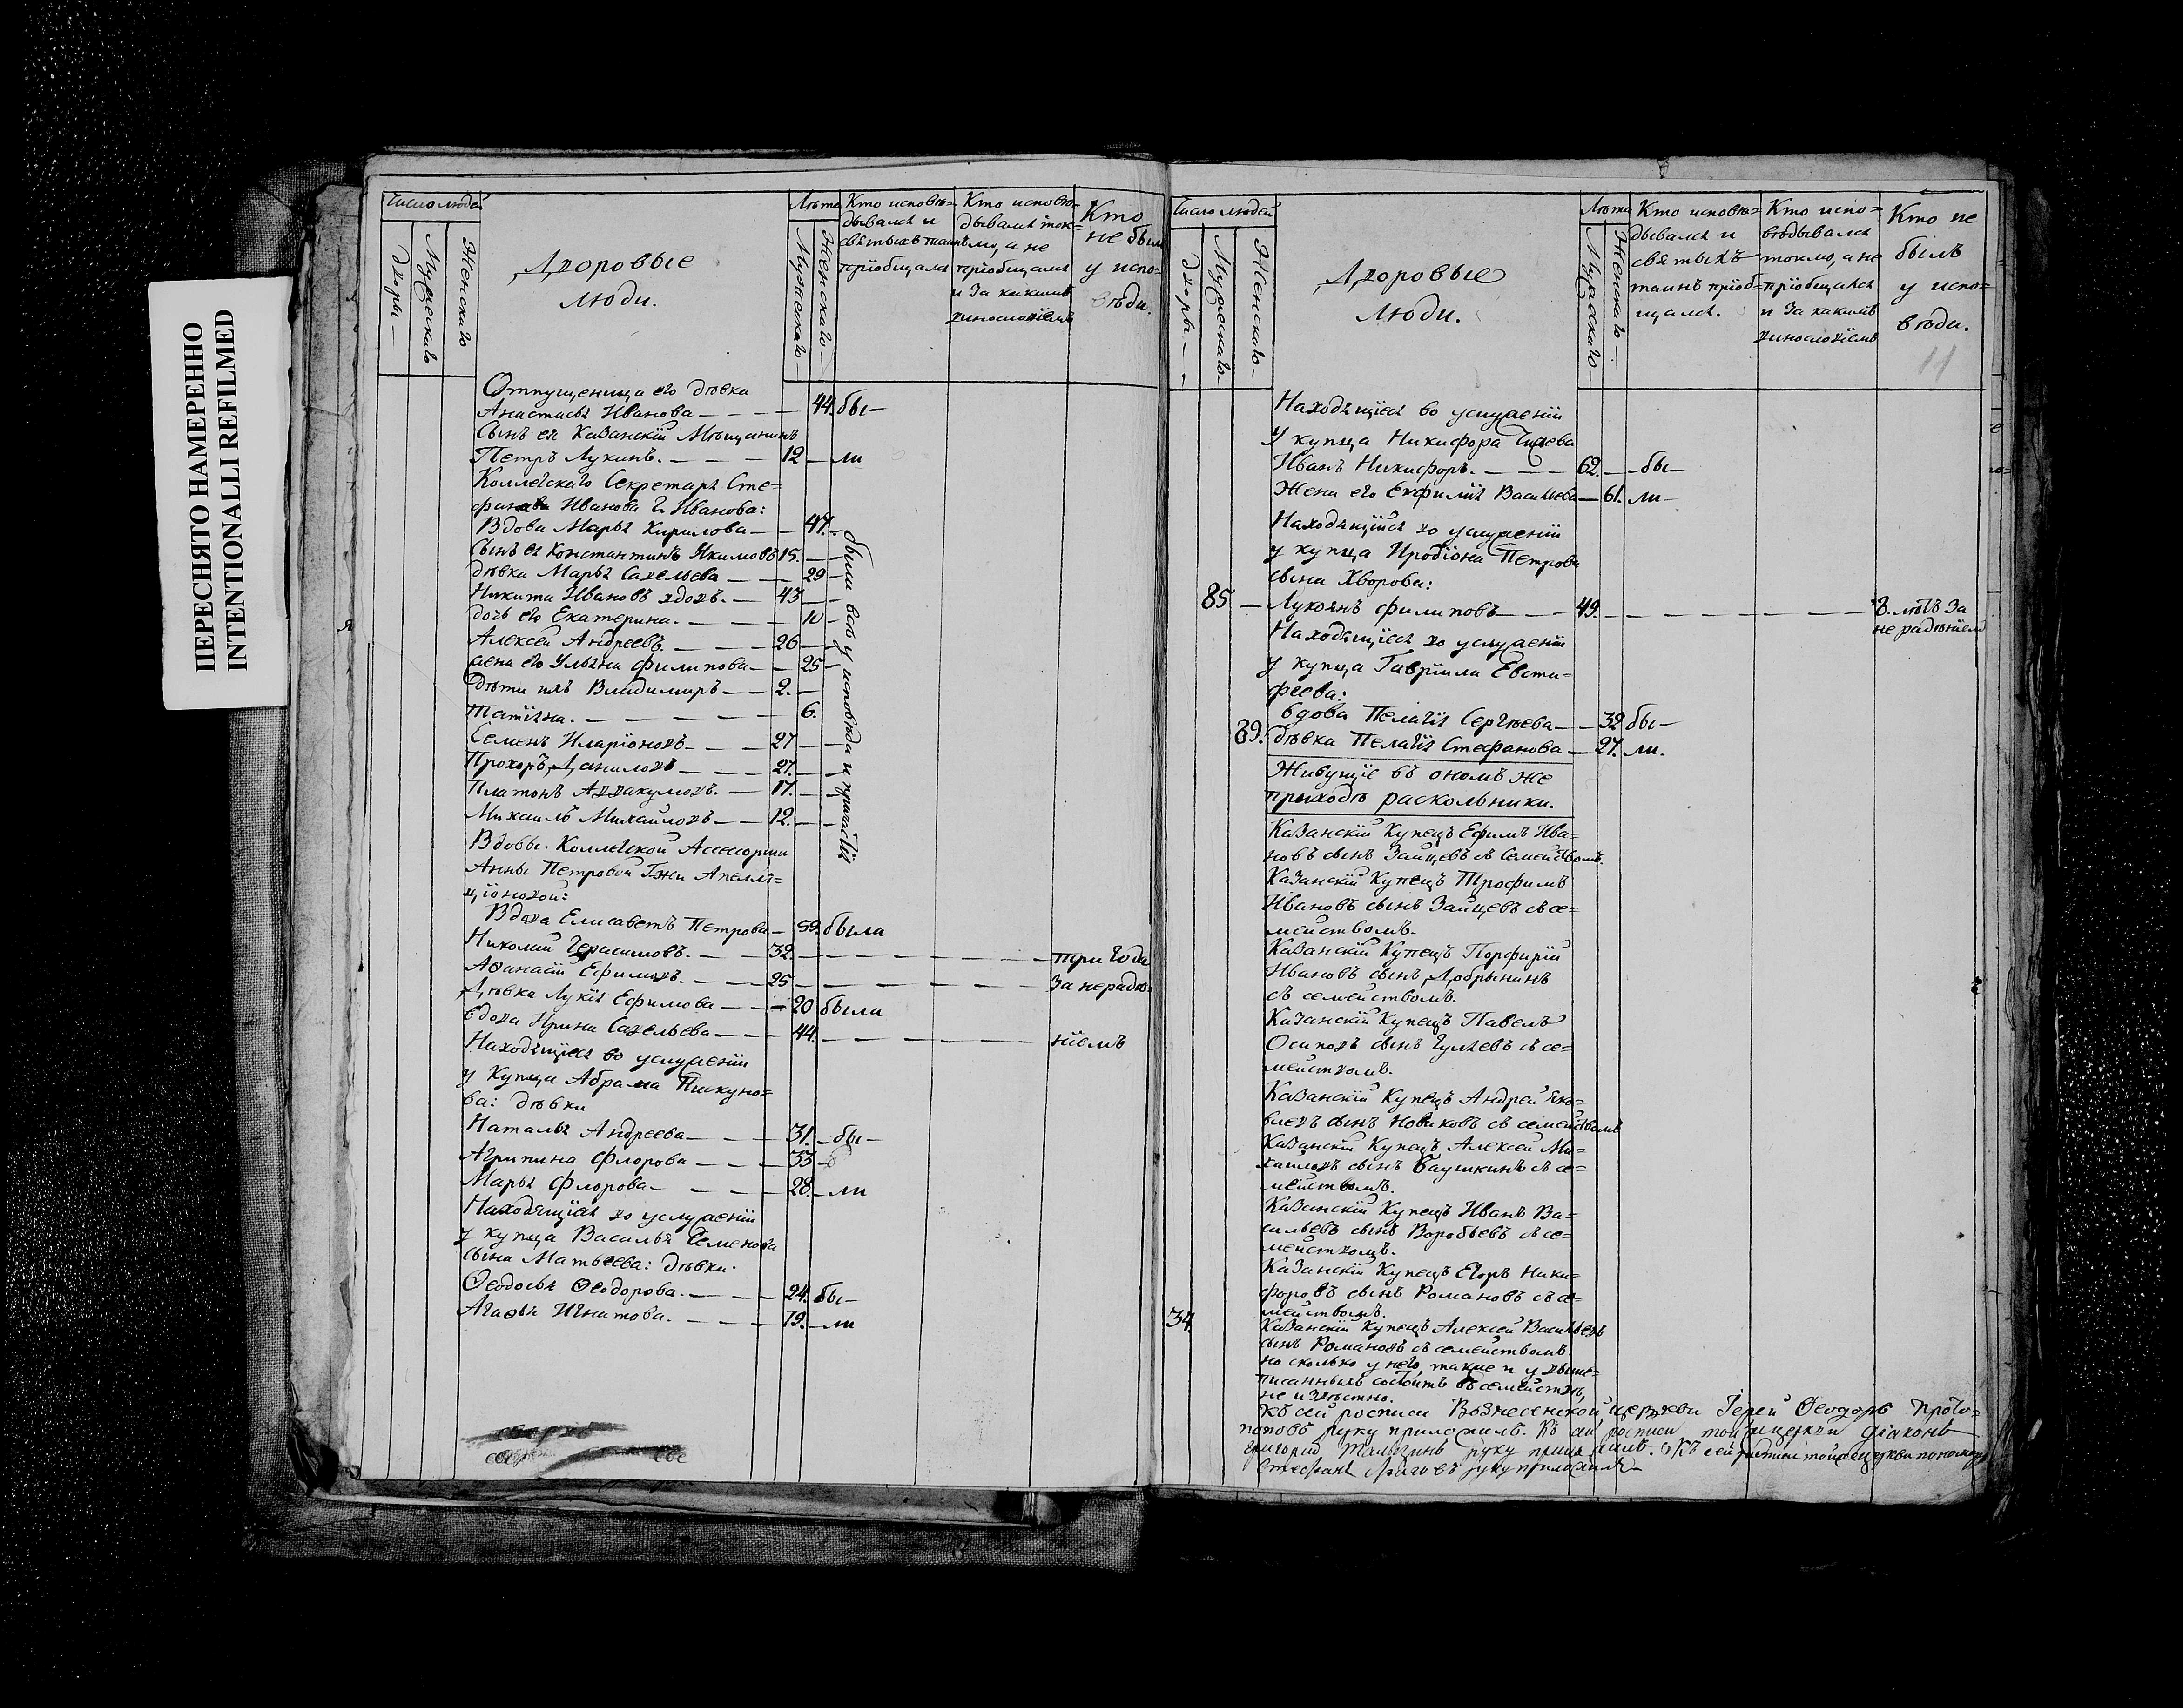 ПЕРЕСНЯТО НАМЕРЕННО
INTENTIONALLI REFILMED
Число людей
Дворы
Мужескаго
Женскаго
Дворовые
люди.
Лѣта
Мужескаго
Женскаго
Кто исповѣ=
дывался и
святыхъ таинъ
пріобщался
Кто исповѣ=
дывался ток=
мо, а не
пріобщался
и за какимъ
винословіемъ
Кто
не былъ
у испо=
вѣди.
Отпущеница его дѣвка
Анастасья Иванова 44. бы
Сынъ ея Казанскій Мѣщанинъ
Петръ Лукинъ. 12 ли
Коллежскаго Секретаря Сте=
фана Иванова Г. Иванова:
Вдова Марья Кирилова 47.
Сынъ ея Константинъ Якимовъ 15.
дѣвка Марья Савельева 29
Никита Ивановъ вдовъ. 43
дочь его Екатерина. 10
Алексей Андреевъ. 26
жена его Ульяна Филипова 25
Дѣти ихъ Владимиръ 2.
Татіяна. 6.
Семенъ Иларіоновъ 27
Прохоръ Даниловъ 27.
Платонъ Аввакумовъ. 17.
Михаилъ Михайловъ 12.
были всѣ у исповѣди и причастія
Вдовы Коллежской Асессорши
Анны Петровой Гжи Апелля=
ціоновой:
Вдова Елисаветъ Петрова 59. была
Николай Герасимовъ. 32. три года
Аѳанасій Ефимовъ. 25 за нерадѣ=
Дѣвка Лукія Ефимова 20 была
вдова Ирина Савельева 44. ніемъ
Находящіяся во услуженіи
у Купца Абрама Пикуно=
ва: дѣвки
Наталья Андреева 31. бы
Агрипина Флорова 33
Марья Флорова 28. ли
Находящіяся во услуженіи
у купца Василья Семенова
сына Матвеева: дѣвки.
Ѳеодосья Ѳеодорова. 24. бы
Агаѳья Игнатова. 19. ли
Число людей
Дворы
Мужескаго
Женскаго
Дворовые
люди.
Лѣта
Мужескаго
Женскаго
Кто исповѣ=
дывался и
святыхъ
таинъ пріоб=
щался.
Кто испо=
вѣдывался
токмо, а не
пріобщался
и за какимъ
винословіемъ
Кто не
былъ
у испо=
вѣди.
11
Находящіяся во услуженіи
у купца Никифора
Иванъ Никифоръ. 62. бы
Жена его Евфимія Васильева 61. ли
Находящійся во услуженіи
у купца Иродіона Петрова
сына Хворова:
85 Лукоянъ Филиповъ 49. 3. лѣтъ за
не радѣніемъ
Находящіяся во услуженіи
у купца Гавріила Евсти=
феева:
вдова Пелагія Сергѣева 32 бы
89. дѣвка Пелагія Стефанова 27. ли.
Живущіе въ ономъ же
приходѣ раскольники.
Казанскій Купецъ Ефимъ Ива=
новъ сынъ Зайцевъ съ семействомъ.
Казанскій Купецъ Трофимъ
Ивановъ сынъ Зайцевъ съ се=
мействомъ.
Казанскій Купецъ Порфирій
Ивановъ сынъ Добрынинъ
съ семействомъ.
Казанскій Купецъ Павелъ
Осиповъ сынъ Гуляевъ съ се=
мействомъ.
Казанскій Купецъ Андрей Яко=
влевъ сынъ Новиковъ съ семействомъ
Казанскій Купецъ Алексей Ми=
хайловъ сынъ Баушкинъ съ се=
мействомъ.
Казанскій Купецъ Иванъ Ва=
сильевъ сынъ Воробьевъ съ се=
мействомъ.
Казанскій Купецъ Егоръ Ники=
форовъ сынъ Романовъ съ се=
мействомъ.
34.
Казанскій Купецъ Алексей Васильевъ
сынъ Романовъ съ семействомъ
но сколько у него, также и у выше=
писанныхъ состоитъ въ семействѣ,
не извѣстно.
Къ сей росписи Вознесенской церкви Іерей Ѳеодоръ Прото=
поповъ руку приложилъ. Къ сей росписи той же церкви діаконъ
Григорій руку приложилъ. Къ сей росписи той же церкви пономарь
Стефанъ руку приложилъ